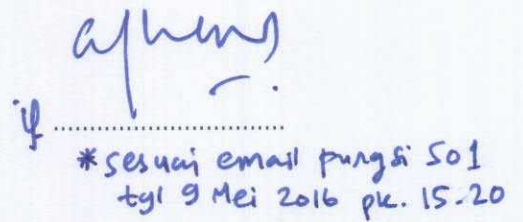 * sesuai email pungsi S01
tgl 9 Mei 2016 pk. 15.20